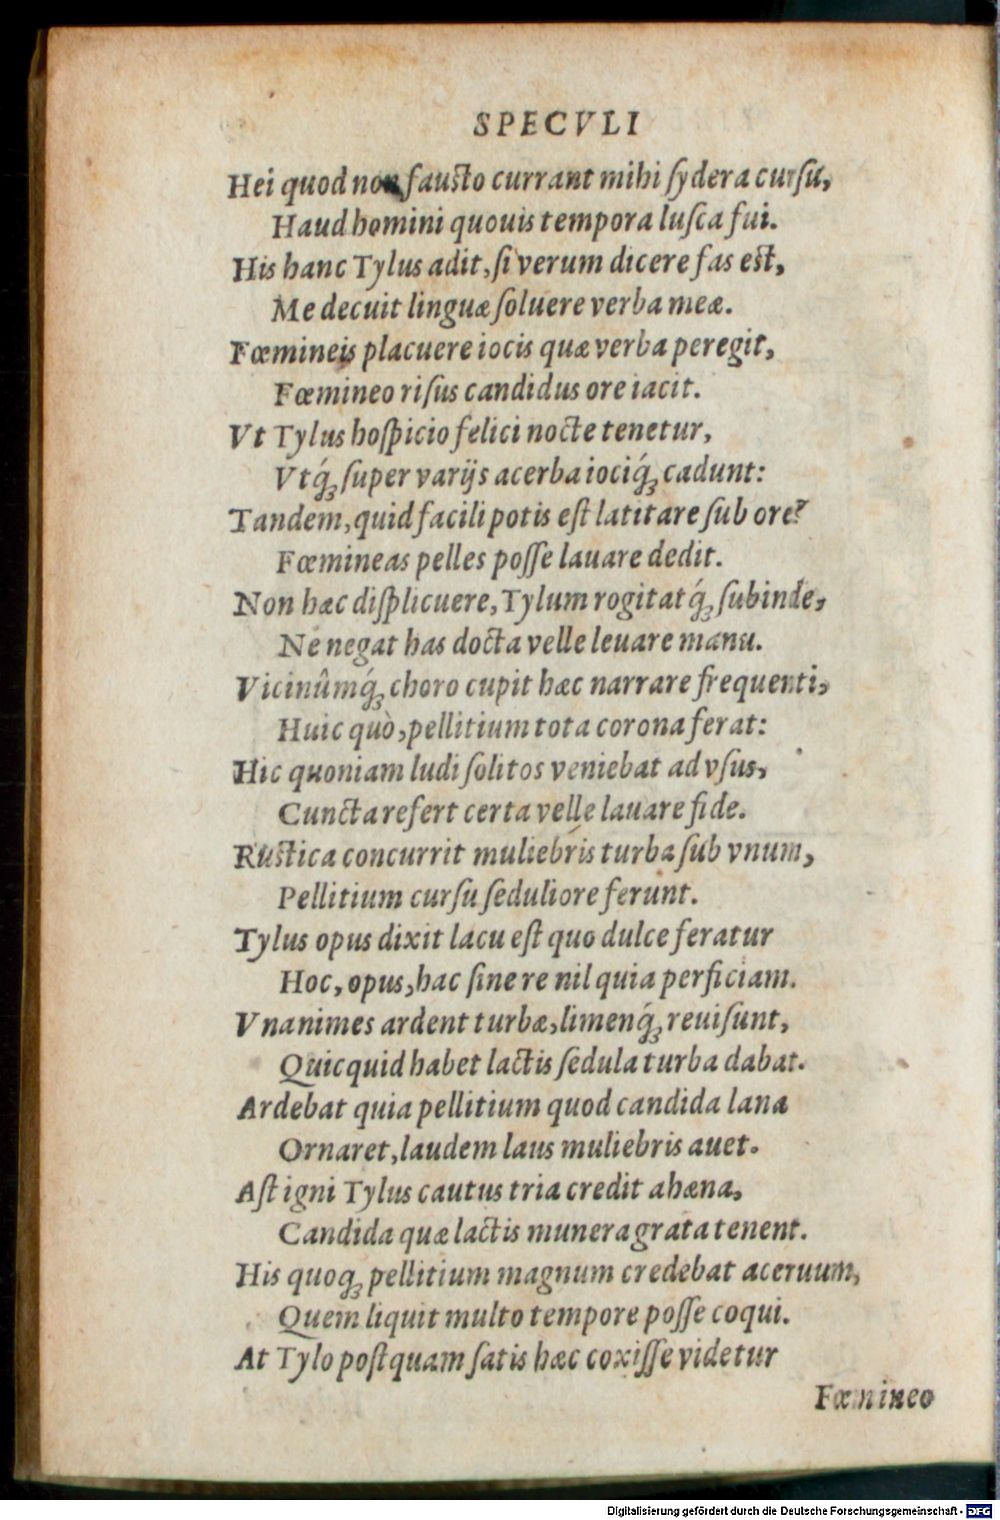 SPECVLI
Hei quod non fausto currant mihi ſydera curſu,
Haud homini quouis tempora luſca fui.
His hanc Tylus adit, ſi verum dicere fas est,
Me decuit linguæ ſoluere verba meæ.
Fœmineis placuere iocis quæ verba peregit,
Fœmineo riſus candidus ore iacit.
Vt Tylus hoſpicio felici nocte tenetur,
Vtq́ꝫ ſuper varijs acerba iociq́ꝫ cadunt:
Tandem, quid facili potis eſt latitare ſub ore?
Fœmineas pelles poſſe lauare dedit.
Non hæc diſplicuere, Tylum rogitatq́ꝫ ſubinde,
Ne negat has docta velle leuare manu.
Vicinûmq́ꝫ choro cupit hæc narrare frequenti,
Huic quò, pellitium tota corona ferat:
Hic quoniam ludi ſolitos veniebat ad vſus,
Cuncta refert certa velle lauare fide.
Rustica concurrit muliebris turba ſub vnum,
Pellitium curſu ſeduliore ferunt.
Tylus opus dixit lacu eſt quo dulce feratur
Hoc, opus, hac ſine re nil quia perficiam.
Vnanimes ardent turbæ, limenq́ꝫ reuiſunt,
Quicquid habet lactis ſedula turba dabat.
Ardebat quia pellitium quod candida lana
Ornaret, laudem laus muliebris auet.
Aſt igni Tylus cautus tria credit ahæna,
Candida quæ lactis munera grata tenent.
His quoqꝫ pellitium magnum credebat aceruum,
Quem liquit multo tempore poſſe coqui.
At Tylo poſtquam ſatis hæc coxiſſe videtur
Fœmineo
Digitalisierung gefördert durch die Deutsche Forschungsgemeinschaft - DFG